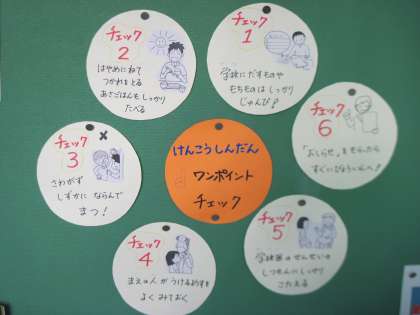 けんこうしんだん
ワンポイント
チェック
チェック
1
学校にだすものや
もちものは しっかり
じゅんび!
チェック
2
はやめにねて
つかれをとる
あさごはんも しっかり
たべる
チェック
3
さわがず
しずかに ならんで
まつ!
チェック
4
まえの人が うけるようすを
よく みておく
チェック
5
学校医のせんせいの
しつもんに しっかり
こたえる
チェック
6
「おしらせ」をもらったら
すぐにびょういんへ!